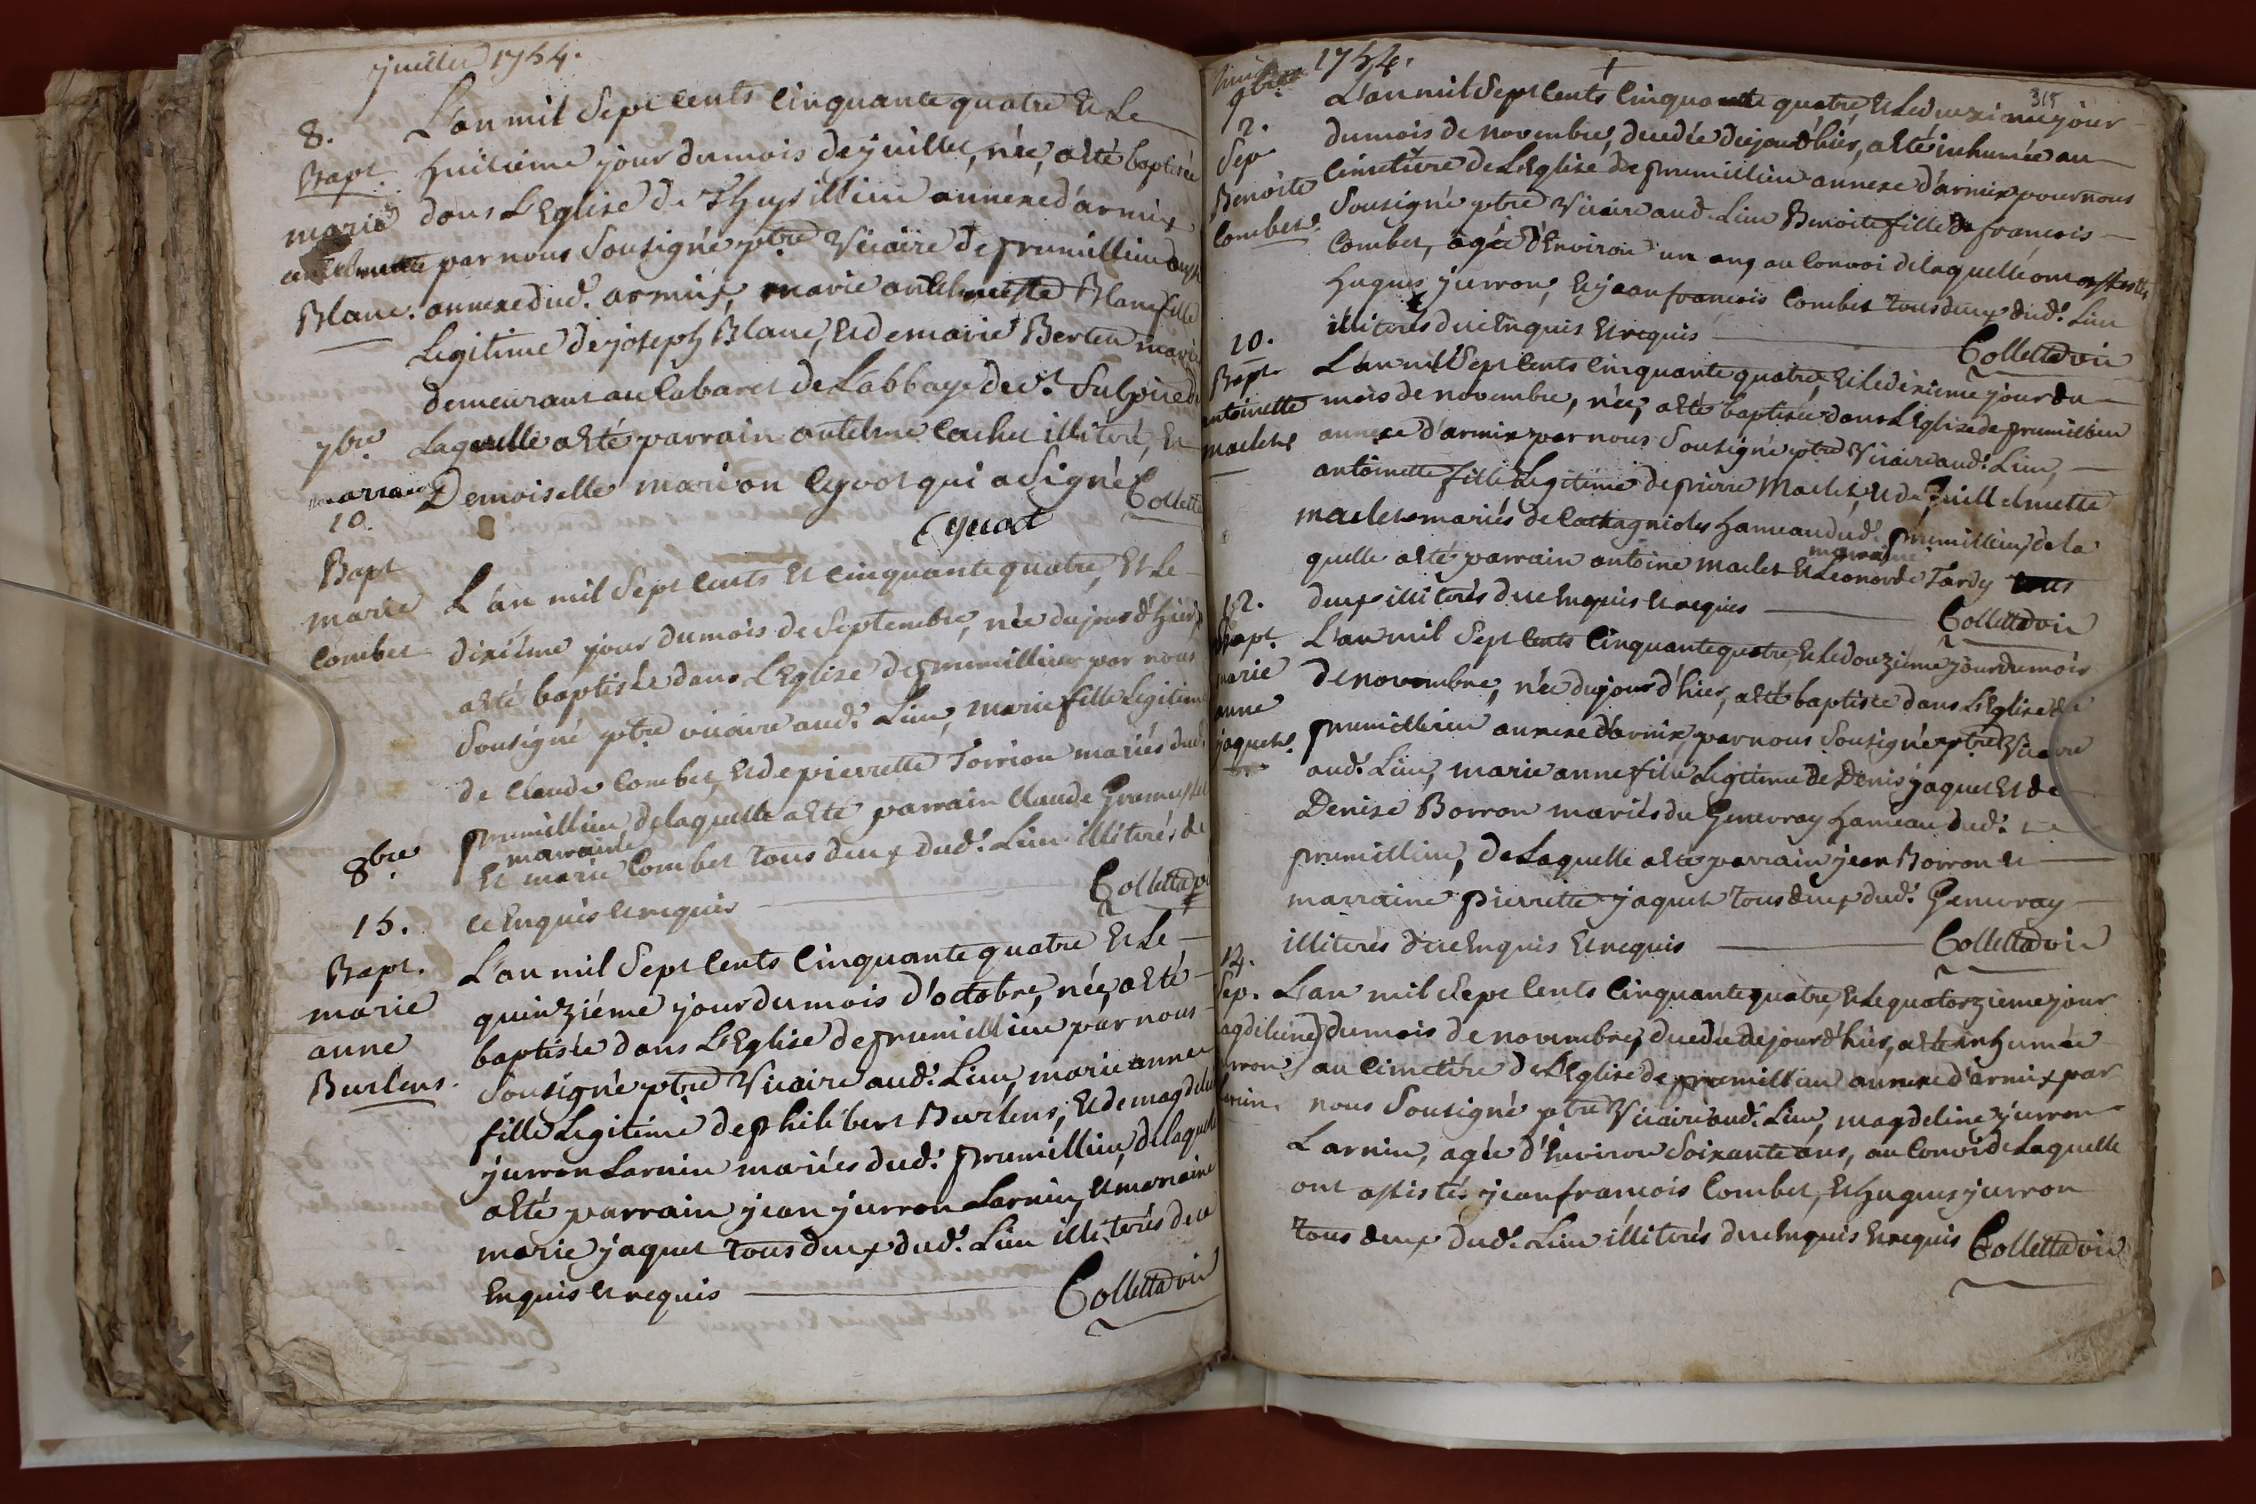 juillet 1754.
8.
Bapt.
marie
Blanc.
L'an mil Sept Cents Cinquante quatre Et Le
huitieme jour du mois de juillet, née, a eté baptisée
dans L'Eglise de Thuysillieu annexe d'armix
par nous Sousigné ptre Vicaire de prumillieu
annexe dud. armix, marie anthelmette Blanc fille
Legitime de joseph Blanc, Et de marie Bertet mariés
demeurant au Cabaret de L'abbaye de St. Sulpice de
Laquelle a eté parrain antelme Cachet illiteré, Et
marraine
Demoiselle marion Cyvot qui a Signé
Colletta
Cyvot
7bre
10.
Bapt
marie
Combet
L'an mil Sept Cents Et Cinquante quatre, Et Le
dixiéme jour du mois de Septembre, née du jour d'hier,
a eté baptisée dans L'Eglise de prumillieu par nous
Sousigné ptre vicaire aud. Lieu, marie fille Legitime
de Claude Combet, Et de pierrette Torrion mariés dud.
prumillieu de laquelle a eté parrain Claude
marraine
Et marie Combet tous deux dud. Lieu illiterés de
ce Enquis Et requis
Colletta
8bre
15.
Bapt.
marie
anne
Burlens.
L'an mil Sept Cents Cinquante quatre Et Le
quinziéme jour du mois d'octobre, née, a eté
baptisée dans L'Eglise de prumillieu par nous
Sousigné ptre Vicaire aud. Lieu, marie anne
fille Legitime de philibert Burlens, Et de magdelei
jurron Larnin mariés dud. prumillieu, de laquelle
a eté parrain jean jurron Larnin, Et marraine
marie jaquet tous deux dud. Lieu illiterés de ce
Enquis Et requis
Colletta vic
9bre 1754.
315
2.
Sep.
Benoite
Combet.
L'an mil Sept Cents Cinquante quatre, Et Le deuxieme jour
du mois de novembre, decedée du jour d'hier, a eté inhumée au
Cimetiere de L'Eglise de prumillieu annexe d'armix par nous
Sousigné ptre Vicaire aud. Lieu Benoite fille de francois
Combet, agée d'Environ un ans au Convoi de laquelle ont assistés
hugues jurron, Et jean francois Combet tous deux dud. Lieu
illiterés de ce Enquis Et requis
Colletta vic
10.
Bapt
antoinette
maclet.
L'an mil Sept Cents Cinquante quatre, Et Le dixieme jour du
mois de novembre, née, a eté baptisée dans L'Eglise de prumillieu
annexe d'armix par nous Sousigné ptre Vicaire aud. Lieu,
antoinette fille Legitime de pierre Maclet, Et de Guillelmette
maclet mariés de hameau dud. prumillieu, de la
quelle a eté parrain antoine maclet Et Leonorde Tardy tous
marraine
deux illiterés de ce Enquis Et requis
Colletta vic
12.
Bapt.
marie
anne
jaquet.
L'an mil Sept Cents Cinquante quatre, Et Le douziéme jour du mois
de novembre, née du jour d'hier, a eté baptisée dans L'Eglise de
prumillieu annexe d'armix, par nous Sousigné ptre Vicaire
aud. Lieu, marie anne fille Legitime de Denis jaquet Et de
Denise Borron mariés du Genevray hameau dud.
prumillieu, de Laquelle a eté parrain jean Borron Et
marraine pierrette jaquet tous deux dud. Genevray
illiterés de ce Enquis Et requis
Colletta vic
14.
Sep.
L'an mil Sept Cents Cinquante quatre, Et Le quatorzieme jour
du mois de novembre, decedée du jour d'hier, a eté inhumée
au Cimetiére de L'Eglise de prumillieu annexe d'armix par
nous Sousigné ptre Vicaire aud. Lieu, magdeleine jurron
Larnin, agée d'Environ Soixante ans, au Convoi de Laquelle
ont assistés jean francois Combet, Et hugues jurron
tous deux dud. Lieu illiterés de ce Enquis Et requis
Colletta vic